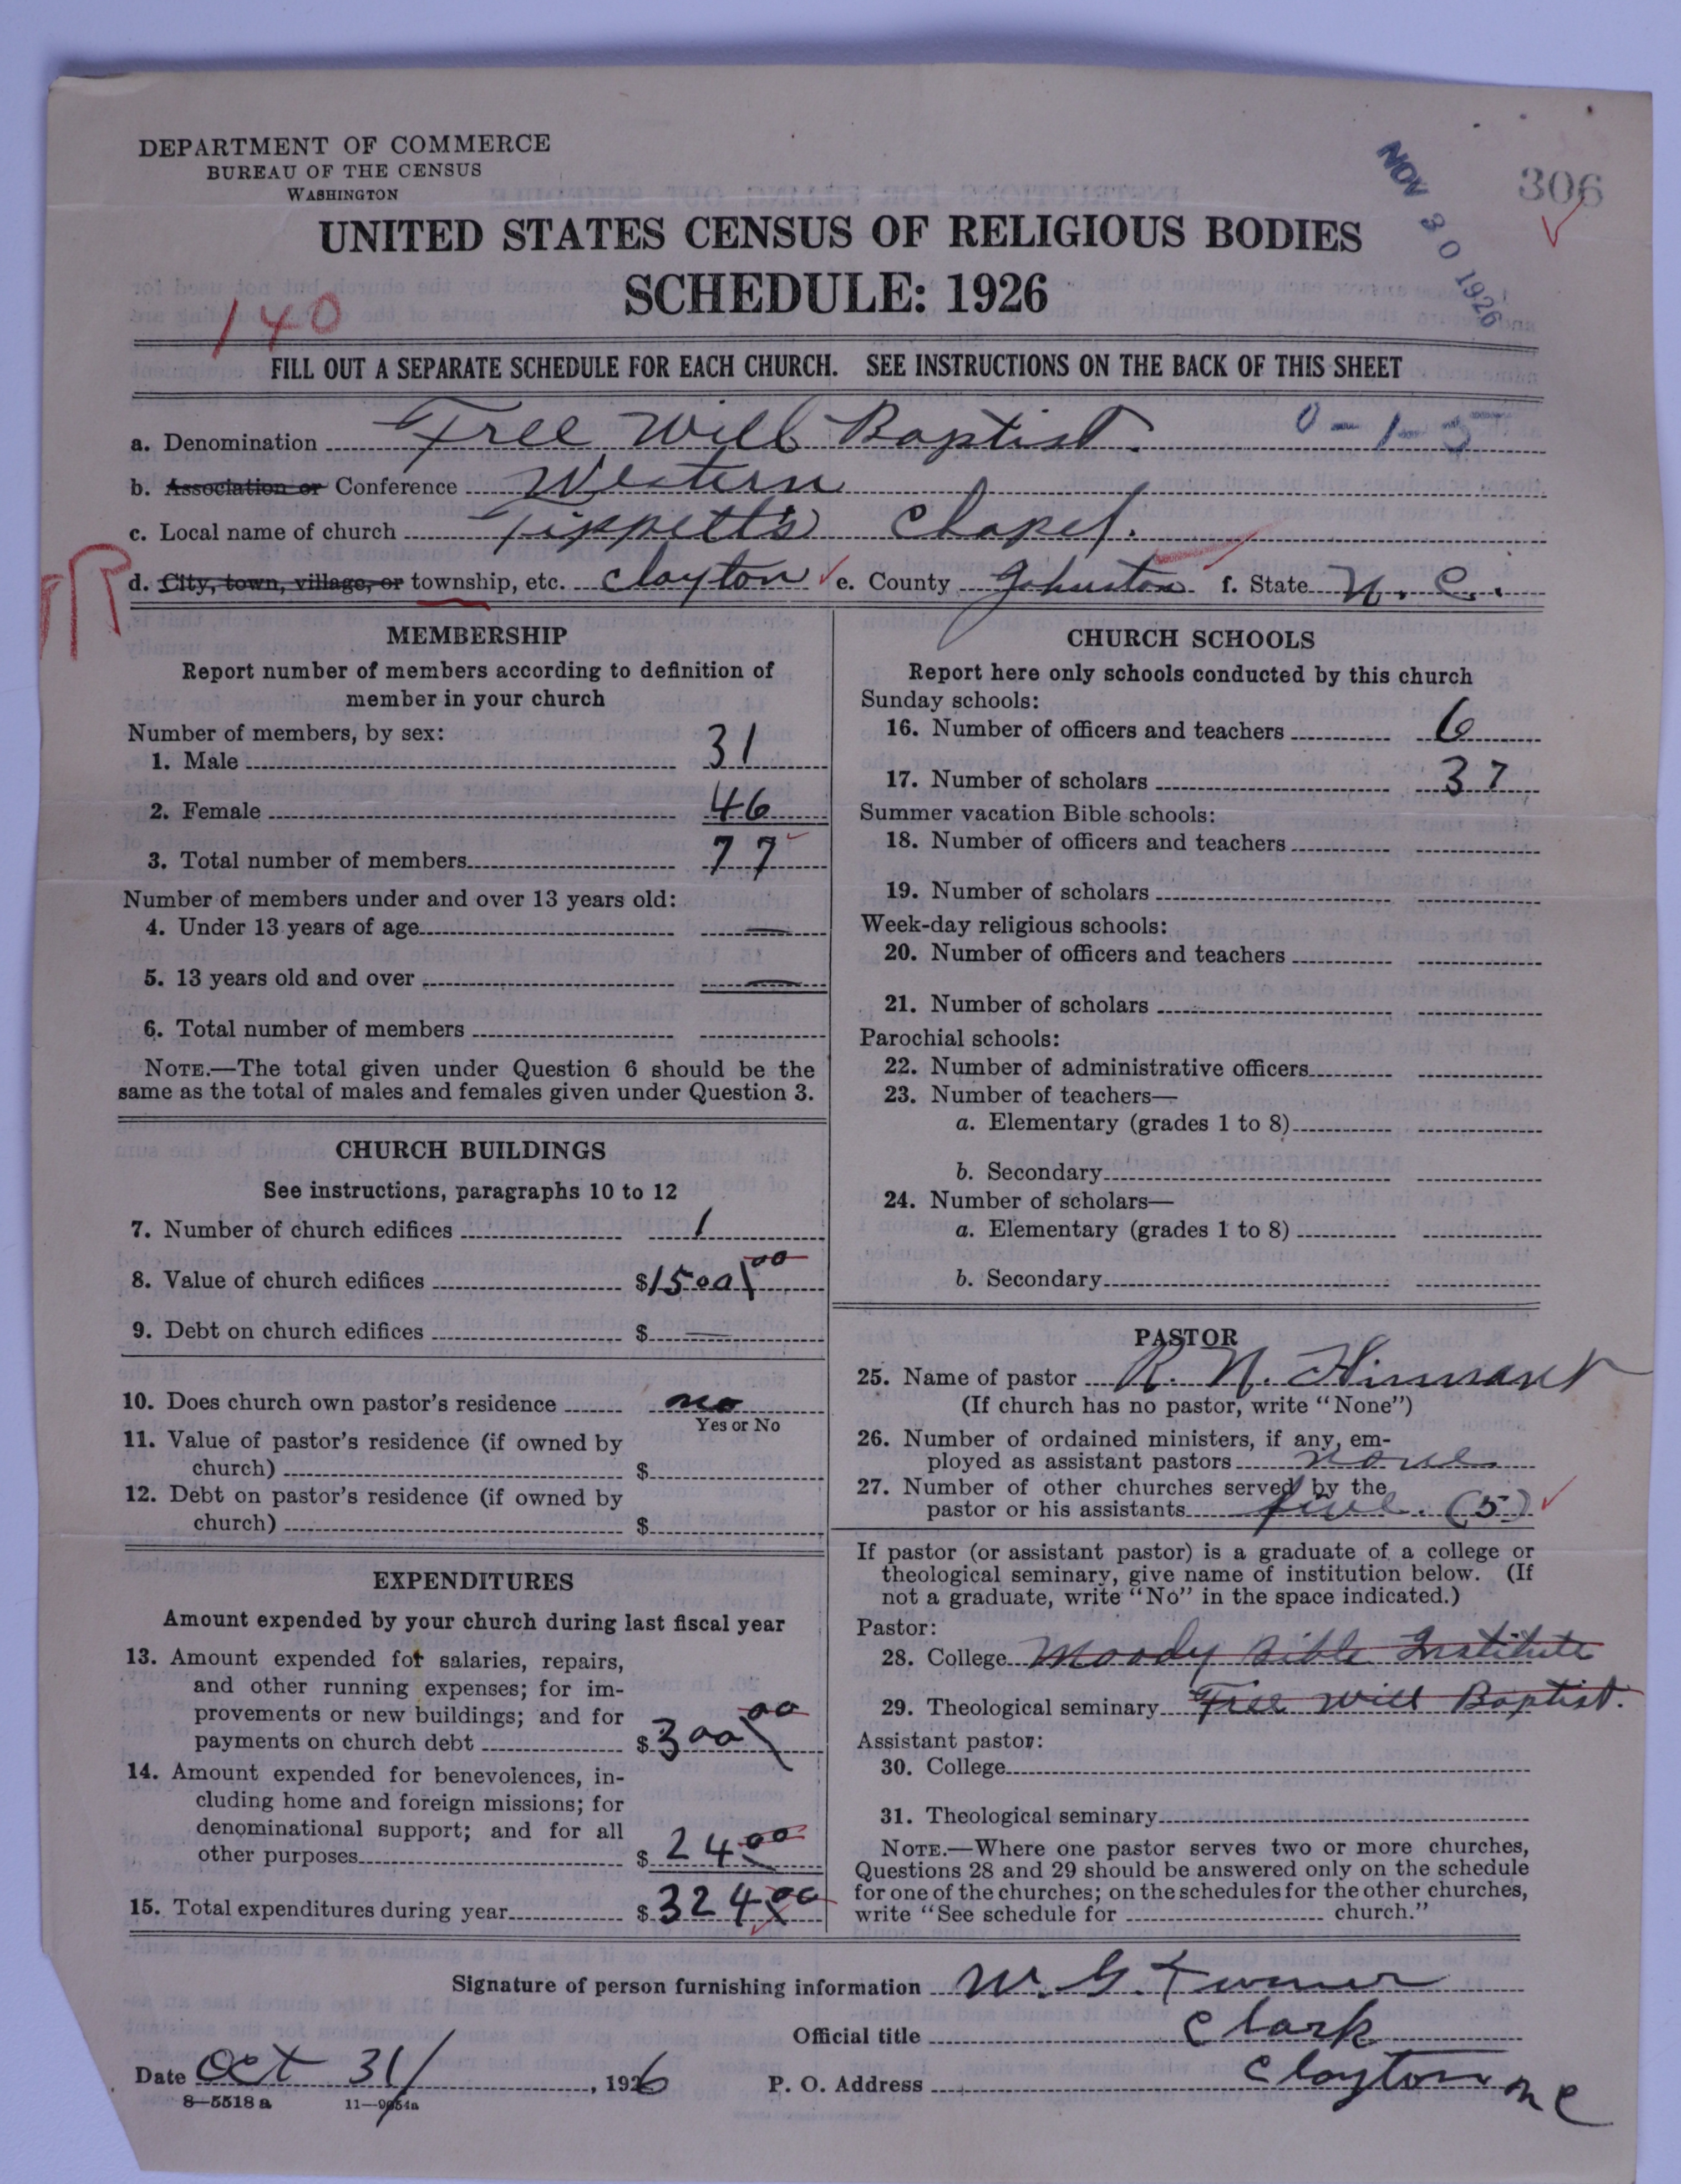 DEPARTMENT OF COMMERCE
BUREAU OF THE CENSUS
WASHINGTON
NOV 30 1926
306
UNITED STATES CENSUS OF RELIGIOUS BODIES
SCHEDULE: 1926
140
FILL OUT A SEPARATE SCHEDULE FOR EACH CHURCH. SEE INSTRUCTIONS ON THE BACK OF THIS SHEET
a. Denomination Free Will Baptist. 0-1-5
b. Association or Conference Western
c. Local name of church Tippetts Chapel.
d. City, town, village, or township, etc. Clayton e. County Johnston f. State N. C.
MEMBERSHIP
Report number of members according to definition of
member in your church
Number of members, by sex:
1. Male 31
2. Female 46
3. Total number of members 77
Number of members under and over 13 years old:
4. Under 13 years of age —
5. 13 years old and over —
6. Total number of members
NOTE.—The total given under Question 6 should be the
same as the total of males and females given under Question 3.
CHURCH BUILDINGS
See instructions, paragraphs 10 to 12
7. Number of church edifices 1
8. Value of church edifices $1500 00
9. Debt on church edifices $ —
10. Does church own pastor's residence no
Yes or No
11. Value of pastor's residence (if owned by
church) $
12. Debt on pastor's residence (if owned by
church) $
EXPENDITURES
Amount expended by your church during last fiscal year
13. Amount expended for salaries, repairs,
and other running expenses; for im-
provements or new buildings; and for
payments on church debt $300 00
14. Amount expended for benevolences, in-
cluding home and foreign missions; for
denominational support; and for all
other purposes $ 24 00
15. Total expenditures during year $324 00
CHURCH SCHOOLS
Report here only schools conducted by this church
Sunday schools:
16. Number of officers and teachers 6
17. Number of scholars 37
Summer vacation Bible schools:
18. Number of officers and teachers
19. Number of scholars
Week-day religious schools:
20. Number of officers and teachers
21. Number of scholars
Parochial schools:
22. Number of administrative officers
23. Number of teachers—
a. Elementary (grades 1 to 8)
b. Secondary
24. Number of scholars—
a. Elementary (grades 1 to 8)
b. Secondary
PASTOR
25. Name of pastor R. N. Hinnant
(If church has no pastor, write "None")
26. Number of ordained ministers, if any, em-
ployed as assistant pastors none
27. Number of other churches served by the
pastor or his assistants five. (5)
If pastor (or assistant pastor) is a graduate of a college or
theological seminary, give name of institution below. (If
not a graduate, write "No" in the space indicated.)
Pastor:
28. College Moody Bible Institute
29. Theological seminary Free Will Baptist.
Assistant pastor:
30. College
31. Theological seminary
NOTE.—Where one pastor serves two or more churches,
Questions 28 and 29 should be answered only on the schedule
for one of the churches; on the schedules for the other churches,
write "See schedule for church."
Signature of person furnishing information W. G.
Official title Clark
Date Oct 31/, 1926 P. O. Address Clayton N C
8—5518 a